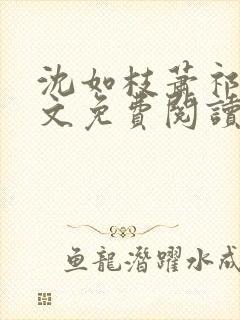 沈如枝蕭祁
文免費閱讀
鱼龍潛躍水成